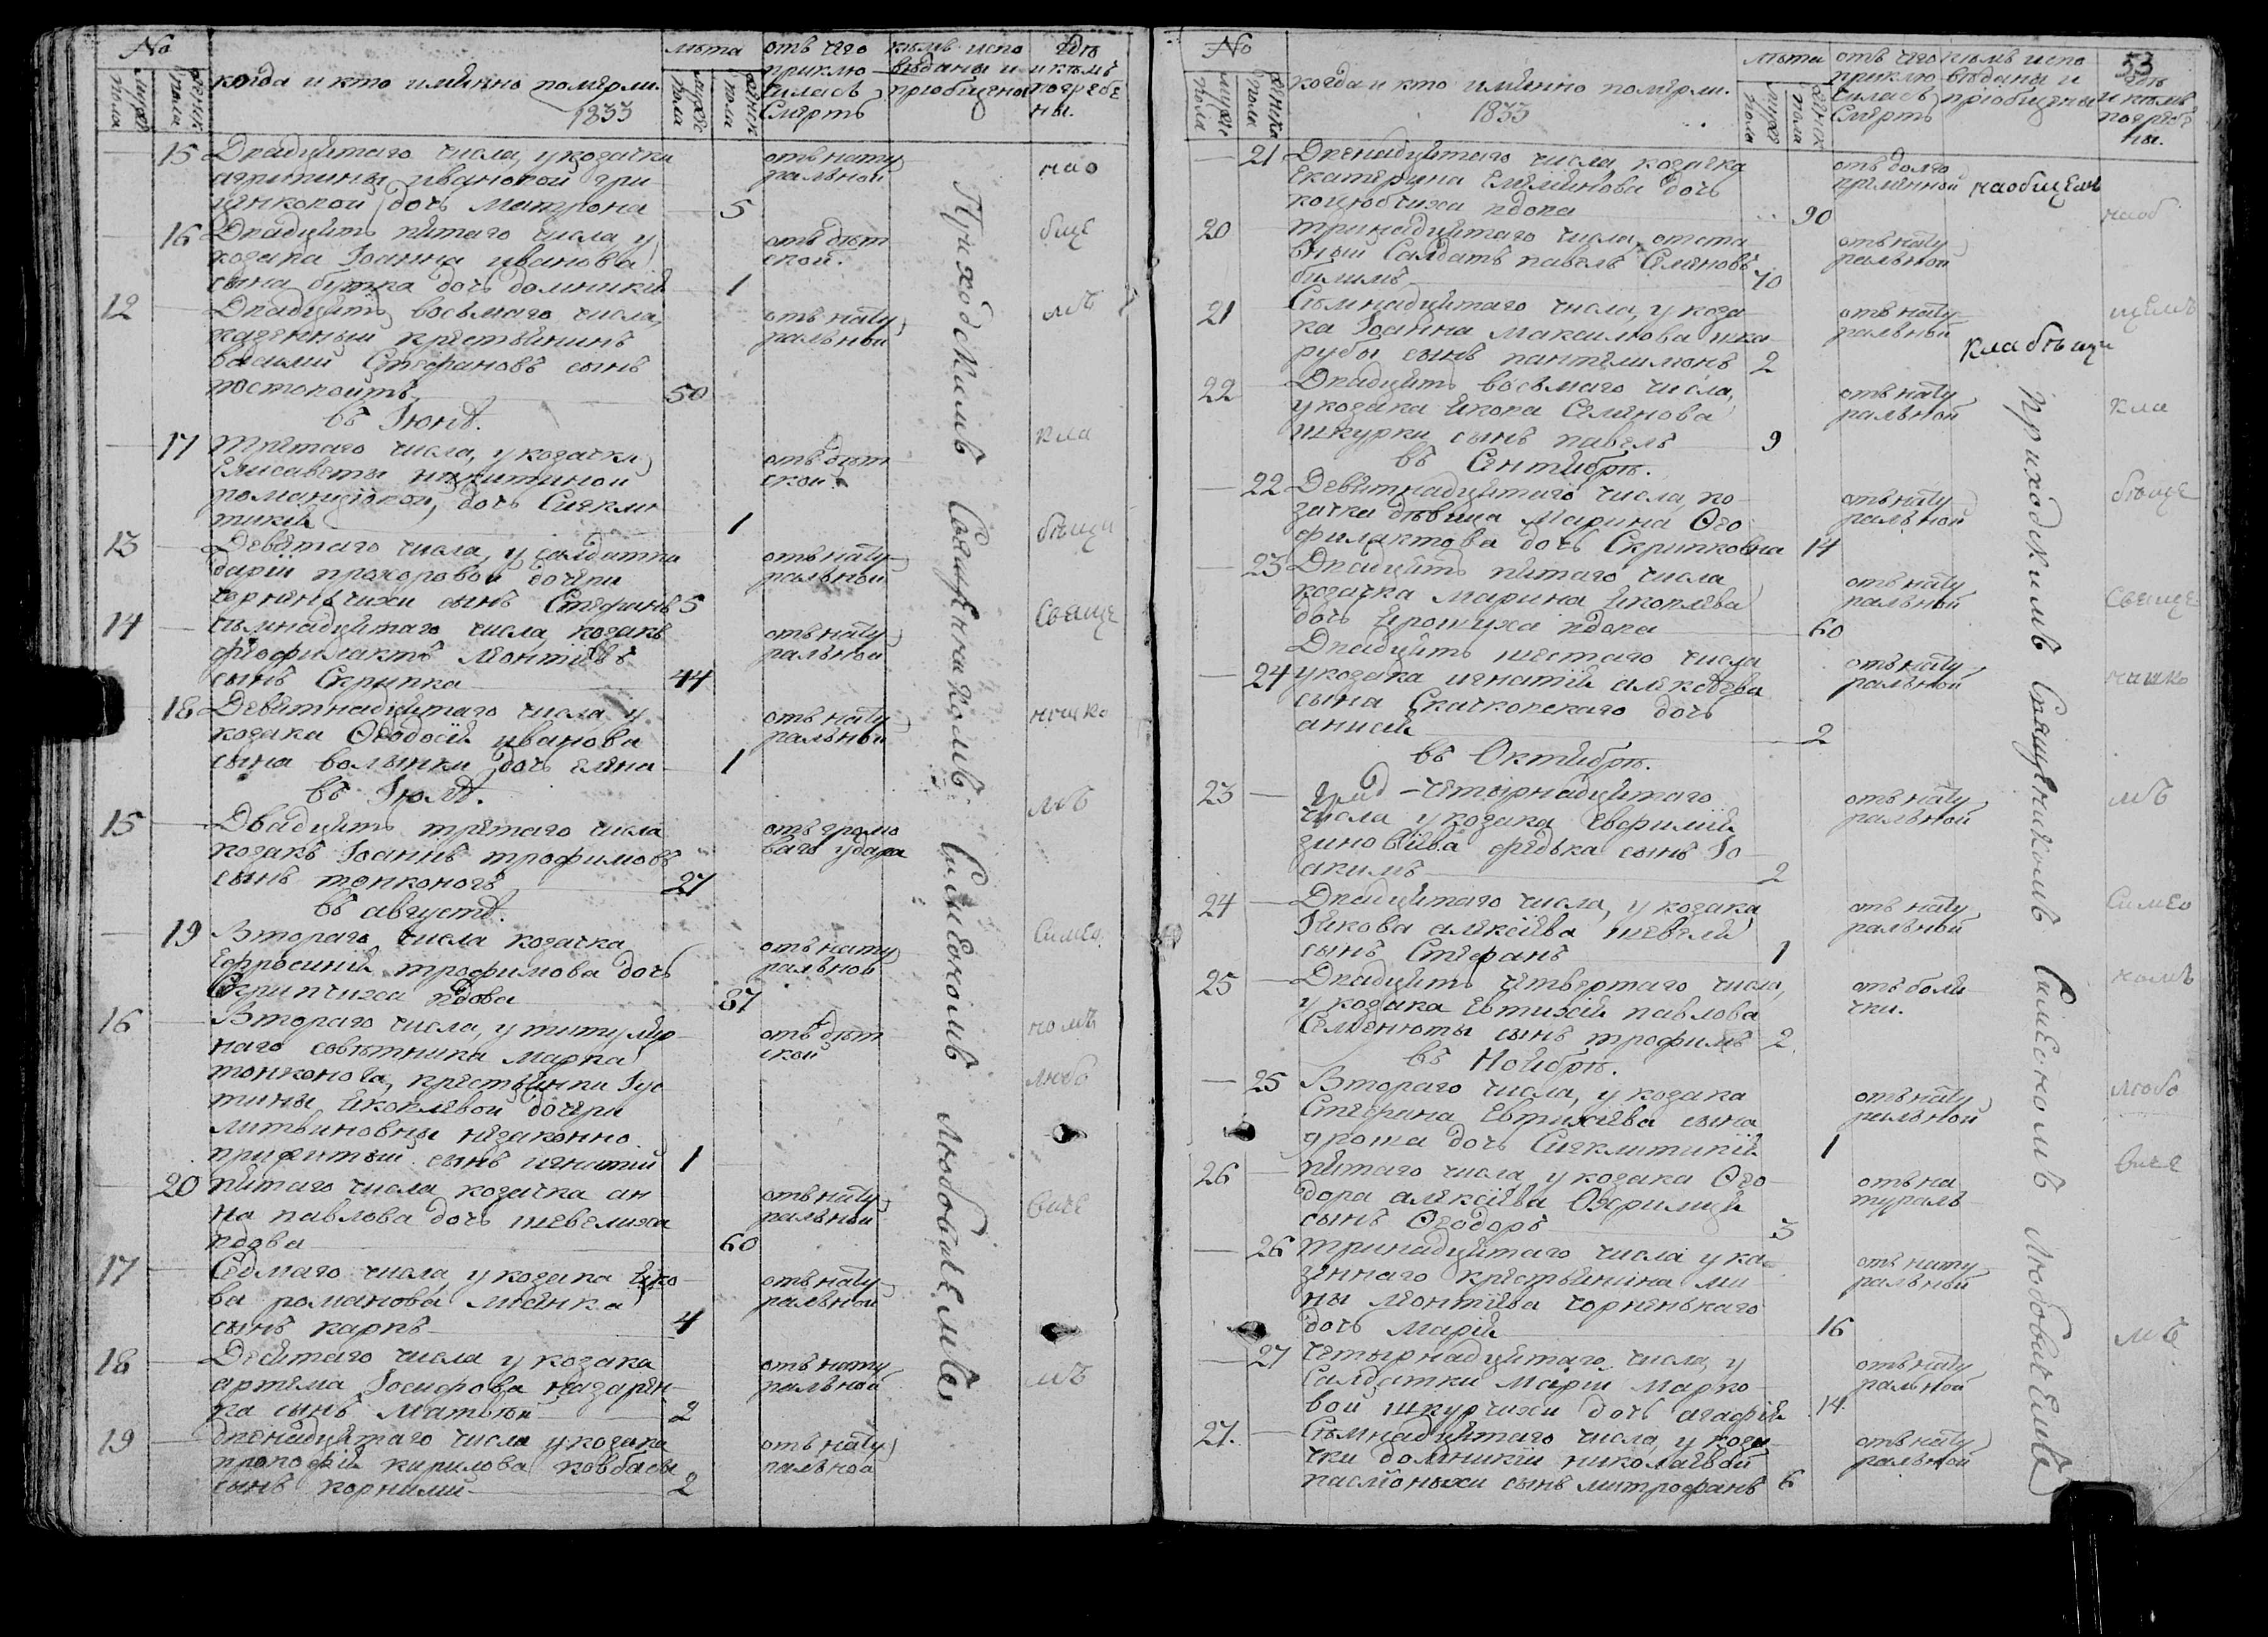 No
мужс пола
женск пола
когда и кто имянно померли.
1833
лѣта
мужс пола
женск пола
отъ чего приклю
чиласъ
Смерть
кѣмъ испо
вѣданы и
пріобщены
Гдѣ
и кѣмъ
погребе
ны.
15 Двадцятаго числа, у козачки
агрипины ивановой гри
ценковой дочь Матрона 5
отъ нату
ральной
16 Двадцять пятаго числа, у
козака Іоанна иванова
сына бутка дочь домникія 1
отъ дѣт
ской.
12 Двадцять восьмаго числа,
казенный крестьянинъ
василій Стефановъ сынъ
50
отъ нату
ральной
въ Іюнѣ.
17 третаго числа, у козачки
Елисаветы никитиной
романцовой, дочь Сиекли
тикія 1
отъ дѣт
ской.
13 Девятаго числа, у салдатки
даріи прохоровой дочери
чорненчихи сынъ Стефанъ 5
отъ нату
ральной
14 сѣмнадцятаго числа, козакъ
феофилактъ леонтіевъ
сынъ Скрипка 44
отъ нату
ральной
18 Девятнадцятаго числа у
козака Ѳеодосія иванова
сына волынки дочь елена 1
отъ нату
ральной
въ Іюлѣ.
15 Двадцять третаго числа
козакъ Іоаннъ трофимовъ
сынъ тонконогъ 27
отъ громо
ваго удара
въ августѣ.
19 Втораго числа козачка
Ефросинія трофимова дочь
Скрипчиха вдова 87
отъ нату
ральной
16 Втораго числа, у титуляр
наго совѣтника Марка
тонконога, крестьянки Іус
тины яковлевой дочери
литвиновны незаконно
прижитый сынъ игнатій 1
отъ дѣт
ской
20 пятаго числа козачка ан
на павлова дочь шевелиха
вдова 60
отъ нату
ральной
17 Седмаго числа, у козака яко
ва романова
сынъ карпъ 4
отъ нату
ральной
18 Десятаго числа у козака
артема Іосифова назарен
ка сынъ Матвѣй 2
отъ нату
ральной
19 двенадцятаго числа у козака
прокофія кирилова ковбасы
сынъ корнилій 2
отъ нату
ральной
Приходскимъ Священникомъ Симеономъ любовичемъ
на о
бще
мъ
кла
бищи
Свяще
нико
мъ
Симео
номъ
любо
виче
мъ
No
53
мужс пола
женска пола
когда и кто имянно померли.
1833
лѣта
мужс пола
женск пола
отъ чего
приклю
чиласъ
Смерть
кѣмъ испо
вѣданы и
пріобщены
Гдѣ
и кѣмъ
погребе
ны.
21 Двенадцятаго числа, козачка
Екатерина Емелянова дочь
вдова 90
отъ долго
временной
на общемъ
20 тринадцятаго числа, отста
вный Салдатъ павелъ Семеновъ
70
отъ нату
ральной
21 Сѣмнадцятаго числа, у коза
ка Іоанна Максимова шка
рубы сынъ пантелимонъ 2
отъ нату
ральной
кладбищи
22 Двадцять восьмаго числа,
у козака якова Семенова
шкурки сынъ павелъ 9
отъ нату
ральной
въ Сентябрѣ.
22 Девятнадцятаго числа, ко
зачка дѣвица Марина Ѳео
филактова дочь Скрипковна 14
отъ нату
ральной
23 Двадцять пятаго числа
козачка Марина яковлева
дочь ярошиха вдова 60
отъ нату
ральной
Двадцять шестаго числа
24 у козака игнатія алексеева
сына Скачковскаго дочь
анисія 2
отъ нату
ральной
въ Октябрѣ.
23 четырнадцятаго
числа у козака Евфимія
зиновіева федька сынъ Іо
акимъ 2
отъ нату
ральной
24 Двадцятаго числа, у козака
Іякова алексіева шевеля
сынъ Стефанъ 1
отъ нату
ральной
25 Двадцять четвертаго числа,
у козака Евтихія павлова
Семенюты сынъ трофимъ 2.
отъ боля
чки.
въ Ноябрѣ.
25 Втораго числа, у козака
Стефана Евтихіева сына
дочь Сиеклитикія 1
отъ нату
ральной
26 пятаго числа у козака Ѳео
дора алексіева Охримця
сынъ Ѳеодоръ 3
отъ на
тураль
26 тринадцятаго числа у ка
зеннаго крестьянина ми
ны леонтіева чорненькаго
дочь Марія 16
отъ нату
ральной
27 четырнадцятаго числа, у
Салдатки Маріи Марко
вой шкурчихи дочь агафія 14.
отъ нату
ральной
27. Сѣмнадцятаго числа, у коза
чки домникіи николаевой
сынъ митрофанъ 6
отъ нату
ральной
приходскимъ Священникомъ Симеономъ Любовичемъ
на об
щемъ
кла
бище
Свяще
нико
мъ
Симео
номъ
любо
виче
мъ